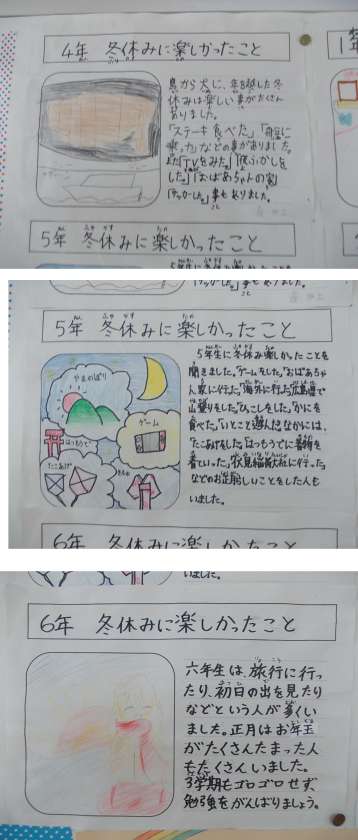 4年 冬休みに楽しかったこと
鳥から犬に、年を越した冬
休みは楽しい事がたくさん
ありました。
「ステーキ食べた」「船に
乗った」などの事がありました。
また「TVをみた」「夜ふかしを
した。」「おばあちゃんの家
事もありました。
5年 冬休みに楽しかったこと
5年 冬休みに楽しかったこと
やまのぼり
ゲーム
はつもうで
たこあげ
きもの
5年生に冬休み楽しかったことを
聞きました。「ゲームをした。」「おばあちゃ
ん家に行た。」「海外に行た」「広島道で
山登りをした。」「ひっこしをした。」「かにを
食べた。」「いとこと遊んだ」なかには、
「たこあげをした。」「はつもうでに着物を
着ていった。」「伏見稲荷大社に行った。」
などのお正月らしいことをした人も
いました。
6年 冬休みに楽しかったこと
いました。
6年 冬休みに楽しかったこと
六年生は、旅行に行っ
たり、初日の出を見たり
などという人が多くい
ました。正月はお年玉
がたくさんたまった人
もたくさんいました。
3学期もゴロゴロせず、
勉強をがんばりましょう。